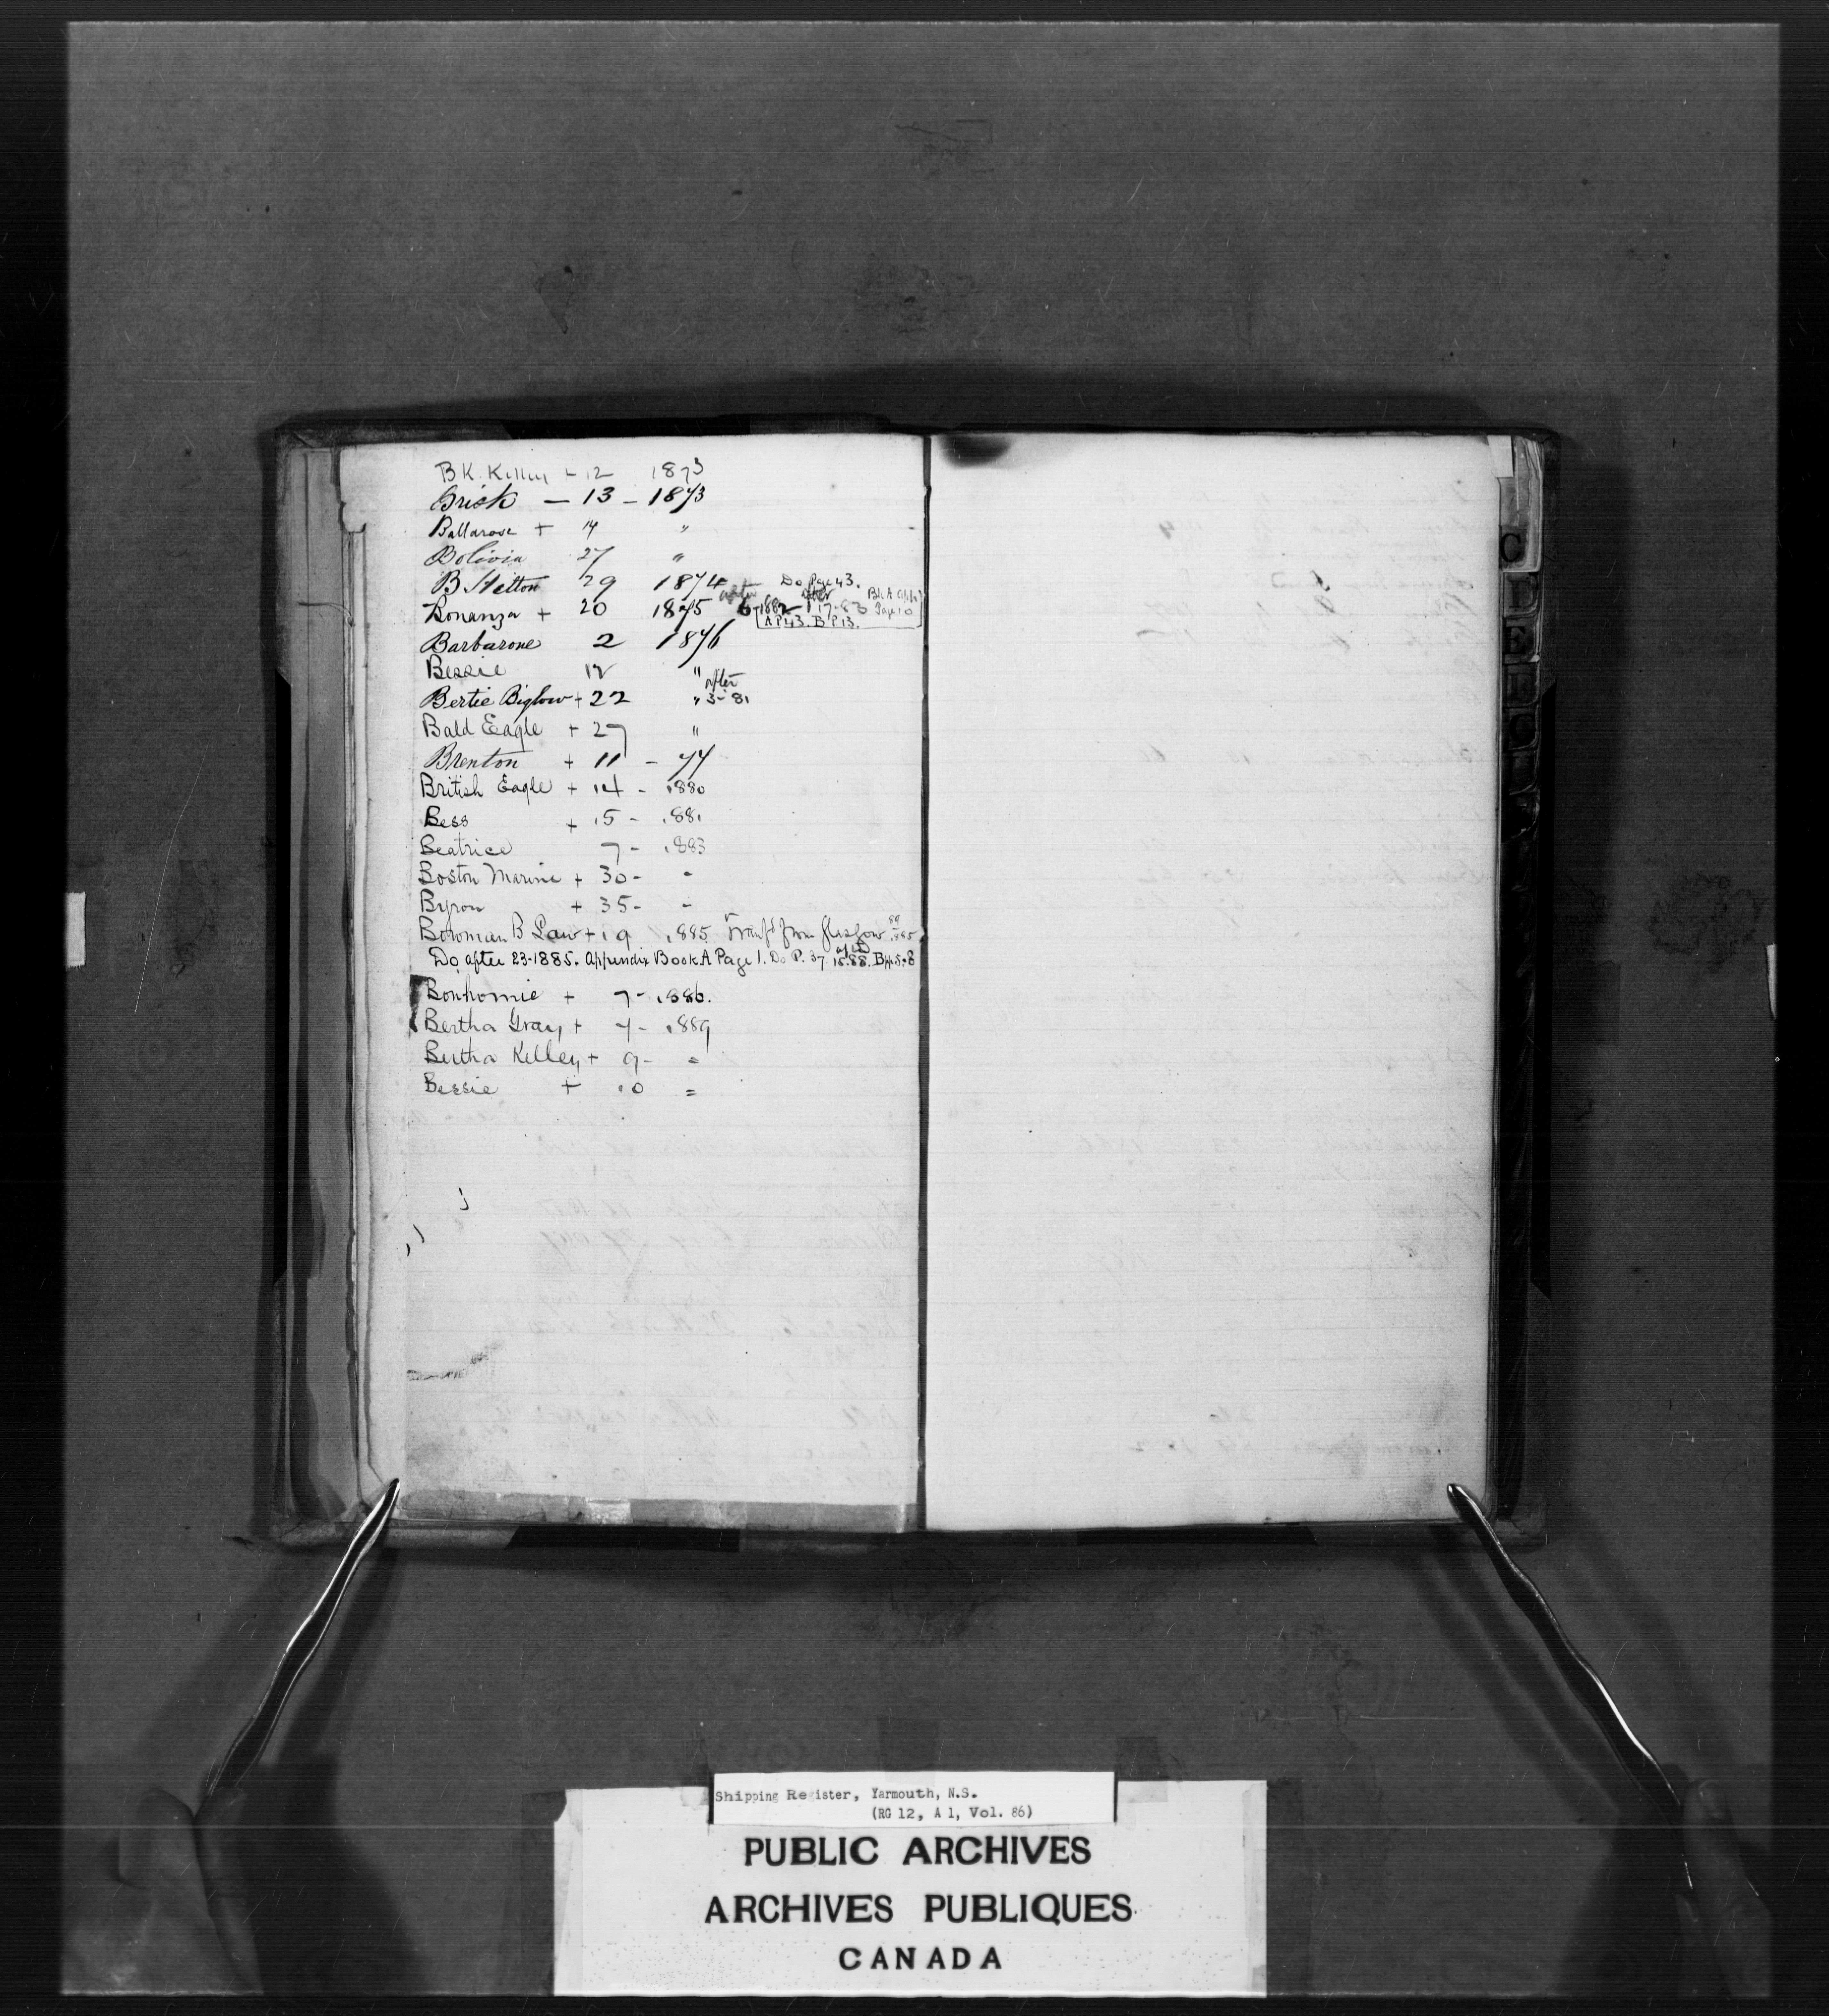 B K. Kelley - 12 1873
Brisk - 13 - 1873
Ballarose + 14 "
Bolivia 27 "
B. Hilton 29 1874 after Do Page 43.
Bonanza + 20 1875 6-1882 after 17-83 Bk A App. Page 10
A P 43. B P 13.
Barbarone 2 1876
Bessie 12 "
Bertie Biglow + 22 " after 3-81
Bald Eagle + 27 "
Brenton + 11 - 77
British Eagle + 14 - 1880
Bess + 15 - 1881
Beatrice 7 - 1883
Boston Marine + 30 - "
Byron + 35 - "
Bowman B Law + 19 1885 Transfd from Glasgow 1885
Do after 23-1885. Appendix Book A Page 1. Do P. 37 after 15.88.
Bonhomie + 7 - 1886.
Bertha Gray + 7 - 1889
Bertha Kelley + 9 - "
Bessie + 10 "
C
D
E
F
G
Shipping Register, Yarmouth, N.S.
(RG 12, A 1, Vol. 86)
PUBLIC ARCHIVES
ARCHIVES PUBLIQUES
CANADA